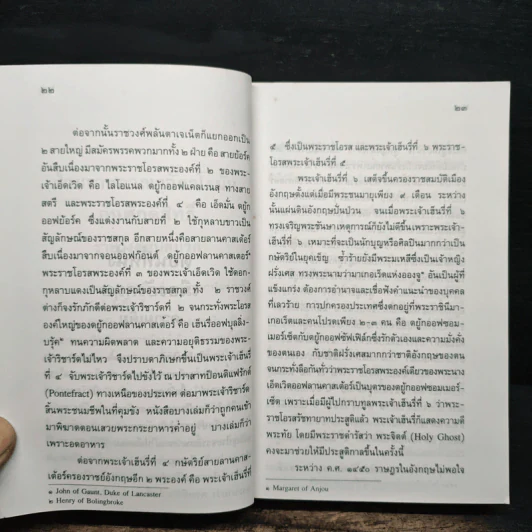 ๒๒
ต่อจากนั้นราชวงศ์พลันตาเจเน็ตก็แยกออกเป็น
๒ สายใหญ่ มีสมัครพรรคพวกมากทั้ง ๒ ฝ่าย คือ สายยอร์ค
อันสืบเนื่องมาจากพระราชโอรสพระองค์ที่ ๒ ของพระ-
เจ้าเอ็ดเวิด คือ ไลโอแนล ดยุ๊กออฟแคลเรนส์ ทางสาย
สตรี และพระราชโอรสพระองค์ที่ ๔ คือ เอ็ดมัน ดยุ๊ก
ออฟยอร์ค ซึ่งแต่งงานกับสายที่ ๒ ใช้กุหลาบขาวเป็น
สัญลักษณ์ของราชสกุล อีกสายหนึ่งคือสายลานคาสเตอร์
สืบเนื่องมาจากจอนออฟก๊อนต์ ดยุ๊กออฟลานคาสเตอร์๑
พระราชโอรสพระองค์ที่ ๓ ของพระเจ้าเอ็ดเวิด ใช้ดอก-
กุหลาบแดงเป็นสัญลักษณ์ของราชสกุล ทั้ง ๒ ราชวงศ์
ต่างก็จงรักภักดีต่อพระเจ้าริชาร์ดที่ ๒ จนกระทั่งพระโอรส
องค์ใหญ่ของดยุ๊กออฟลานคาสเตอร์ คือ เฮ็นรี่ออฟบุลลิง-
บรุ๊ค๒ ทนความผิดพลาด และความอยุติธรรมของพระ-
เจ้าริชาร์ดไม่ไหว จึงปราบดาภิเษกขึ้นเป็นพระเจ้าเฮ็นรี่
ที่ ๔ จับพระเจ้าริชาร์ดไปขังไว้ ณ ปราสาทป้อนติแฟรักต์
(Pontefract) ทางเหนือของประเทศ ต่อมาพระเจ้าริชาร์ด
สิ้นพระชนมชีพในที่คุมขัง หนังสือบางเล่มก็ว่าถูกคนเข้า
มาพิฆาตตอนเสวยพระกระยาหารค่ำอยู่ บางเล่มก็ว่า
เพราะอดอาหาร
ต่อจากพระเจ้าเฮ็นรี่ที่ ๔ กษัตริย์สายลานคาส-
เตอร์ครองราชย์อังกฤษอีก ๒ พระองค์ คือ พระเจ้าเฮ็นรี่ที่
๑ John of Gaunt, Duke of Lancaster
๒ Henry of Bolingbroke
๒๓
๕ ซึ่งเป็นพระราชโอรส และพระเจ้าเฮ็นรี่ที่ ๖ พระราช-
โอรสพระเจ้าเฮ็นรี่ที่ ๕
พระเจ้าเฮ็นรี่ที่ ๖ เสด็จขึ้นครองราชสมบัติเมือง
อังกฤษตั้งแต่เมื่อมีพระชนมายุเพียง ๙ เดือน ระหว่าง
นั้นแผ่นดินอังกฤษปั่นป่วน จนเมื่อพระเจ้าเฮ็นรี่ที่ ๖
ทรงเจริญพระชันษาเหตุการณ์ก็ยังไม่ดีขึ้นเพราะพระเจ้า-
เฮ็นรี่ที่ ๖ เหมาะที่จะเป็นนักบุญหรือศิลปินมากกว่าเป็น
กษัตริย์ในยุคเข็ญ ซ้ำร้ายยังมีพระมเหสีซึ่งเป็นเจ้าหญิง
ฝรั่งเศส ทรงพระนามว่ามาเกอเร็ตแห่งอองจู๑ อันเป็นผู้ที่
แข็งแกร่ง ต้องการอำนาจและเชื่อฟังคำแนะนำของบุคคล
ที่เลวร้าย การปกครองประเทศซึ่งตกอยู่ที่พระราชินีมา-
เกอเร็ตและคนโปรดเพียง ๒-๓ คน คือ ดยุ๊กออฟซอม-
เมอร์เซ็ตกับดยุ๊กออฟซัฟเฟิล์กซึ่งรักตัวเองและความมั่งคั่ง
ของตนเอง กับชาติฝรั่งเศสมากกว่าชาติอังกฤษของตน
จนกระทั่งลือกันทั่วว่าพระราชโอรสพระองค์เดียวของพระนาง
เอ็ดเวิดออฟลานคาสเตอร์เป็นบุตรของดยุ๊กออฟซอมเมอร์-
เซ็ต เพราะเมื่อมีผู้ไปกราบทูลพระเจ้าเฮ็นรี่ที่ ๖ ว่าพระ-
ราชโอรสรัชทายาทประสูติแล้ว พระเจ้าเฮ็นรี่ก็แสดงความดี
พระทัย โดยมีพระราชดำรัสว่า พระจิตต์ (Holy Ghost)
คงจะมาช่วยให้มีประสูติกาลขึ้นในครั้งนี้
ระหว่าง ค.ศ. ๑๔๕๐ ราษฎรในอังกฤษไม่พอใจ
๑ Margaret of Anjou